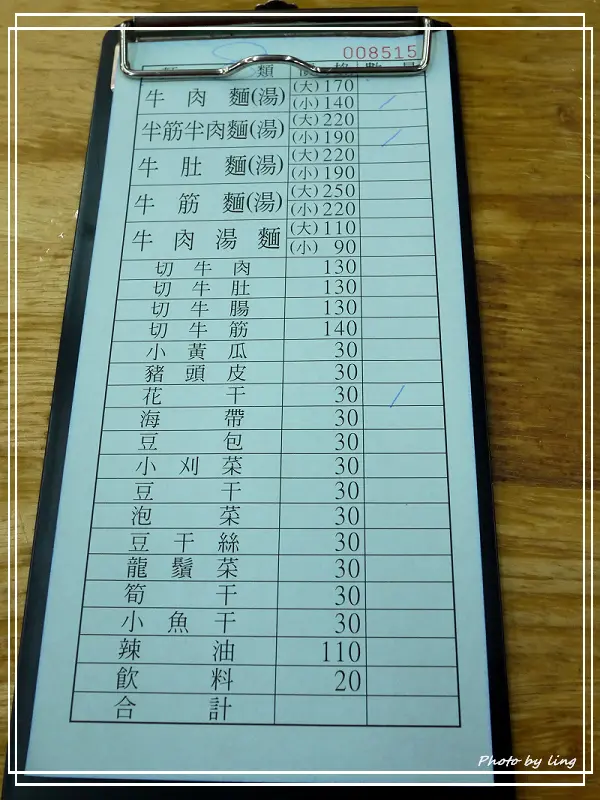 008515
類 價 格 數 量
牛肉麵(湯) (大) 170
(小) 140
半筋半肉麵(湯) (大) 220
(小) 190
牛肚麵(湯) (大) 220
(小) 190
牛筋麵(湯) (大) 250
(小) 220
牛肉湯麵 (大) 110
(小) 90
切牛肉 130
切牛肚 130
切牛腸 130
切牛筋 140
小黃瓜 30
豬頭皮 30
花干 30
海帶 30
豆包 30
小刈菜 30
豆干 30
泡菜 30
豆干絲 30
龍鬚菜 30
筍干 30
小魚干 30
辣油 110
飲料 20
合計
Photo by ling